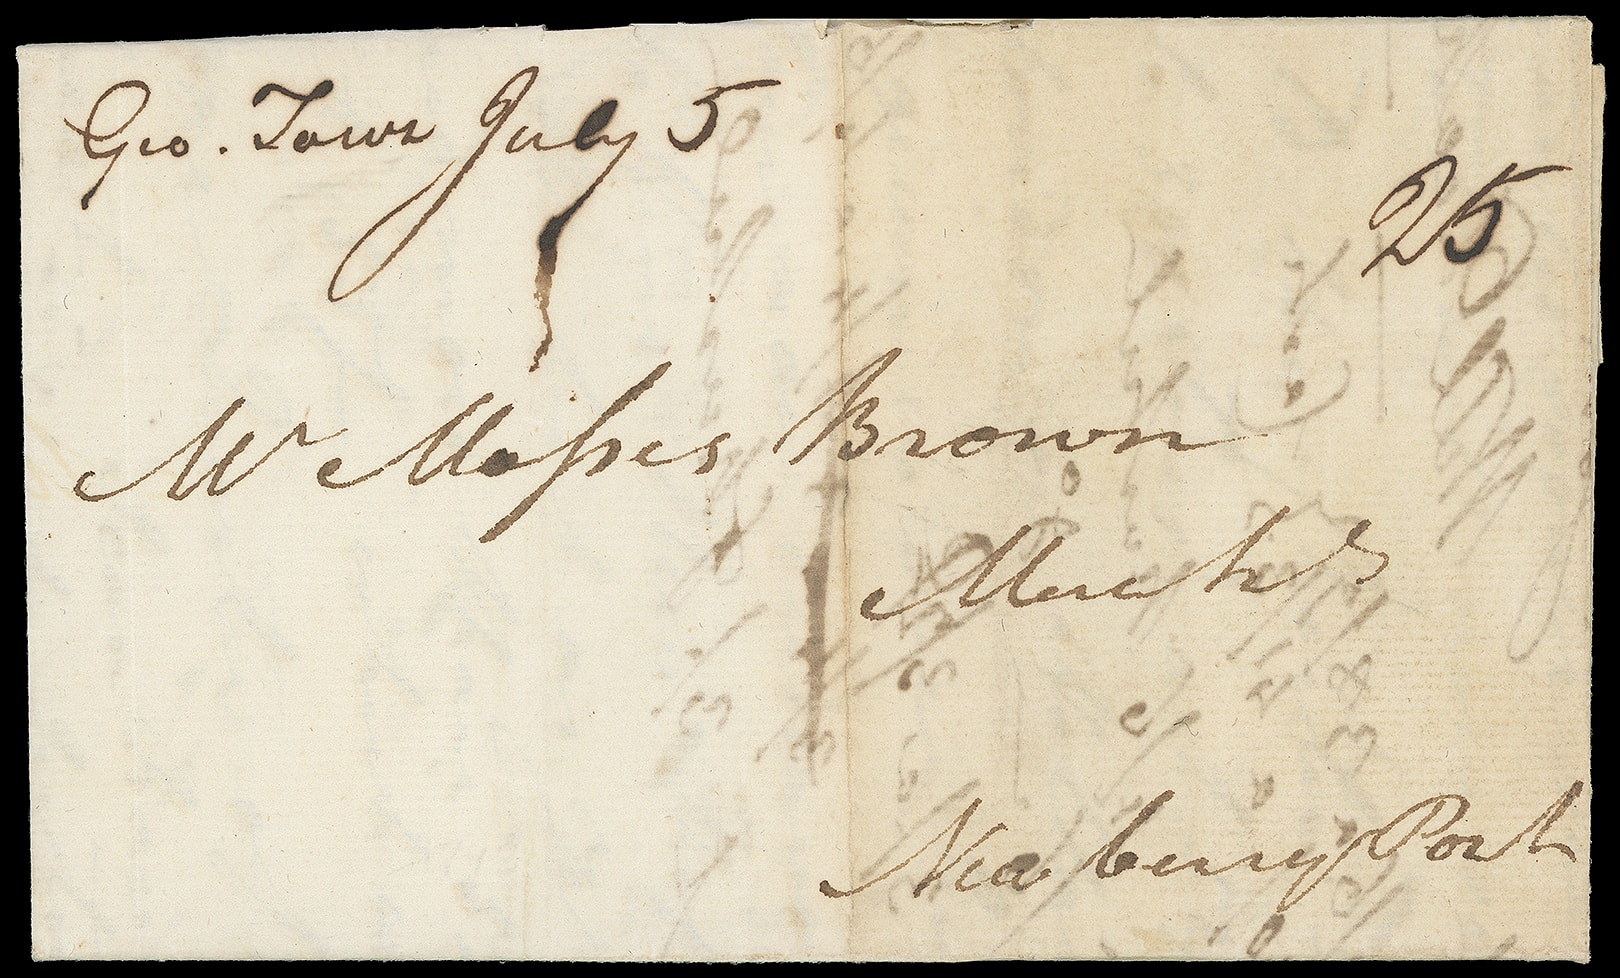 Geo. Town July 5
25
Mr Moſses Brown
Mercht
Newberry Port